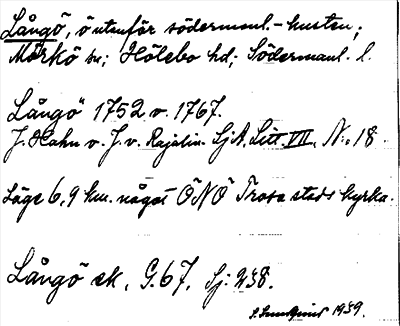 Långö, ö utanför södermanl.-kusten;
Mörkö sn; Hölebo hd; Södermanl. l.
Långö 1752 v. 1767.
J. Hahn v. J. v. Rajalin. SjA. Litt. VII. N:o 18.
Läge 6,9 km. något ÖNÖ Trosa stads kyrka.
Långö ek. G. 67. Sj: 238.
1939.